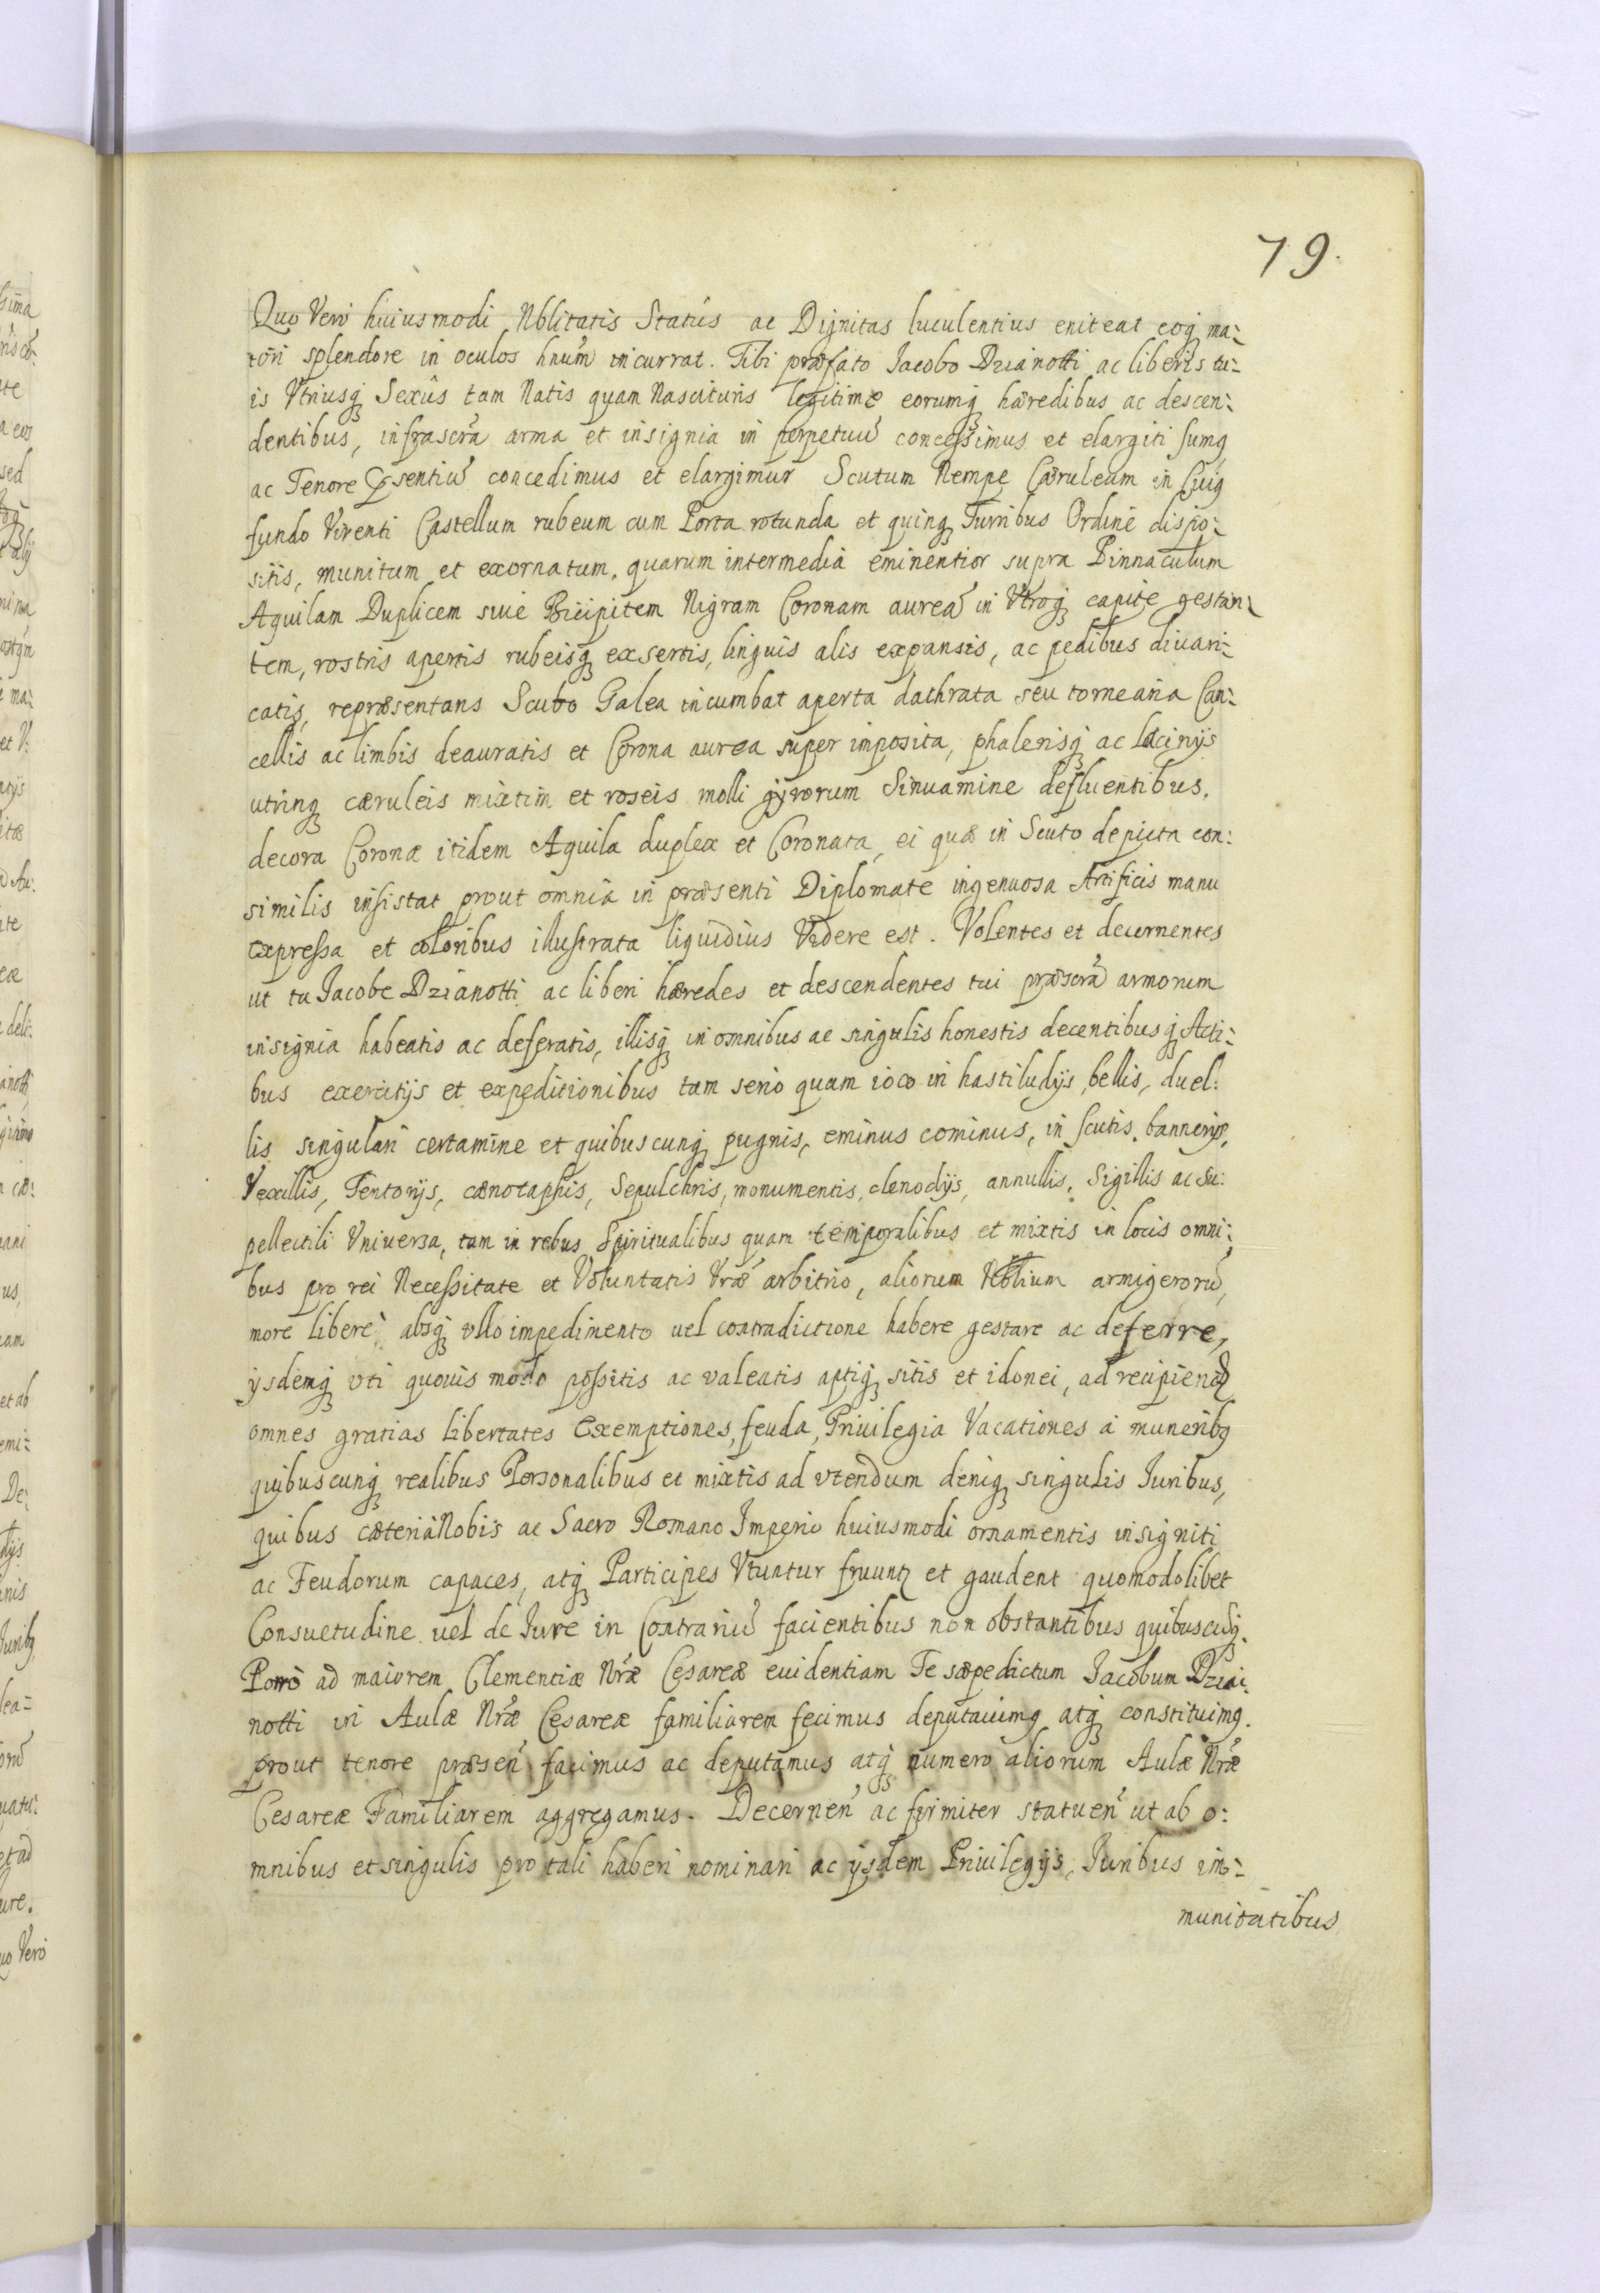 79.
Quo Vero huiusmodi Nblitatis Status ac Dignitas luculentius eniteat eoq̨ ma:
iori splendore in oculos hnum̃ incurrat. Tibi præfato Iacobo Dzianotti ac liberis tu:
is Vtriusq̨ Sexûs tam Natis quam Nascituris legitimę eorumq̨ hæredibus ac descen:
dentibus, infrascrã arma et insignia in perpetuũ concessimus et elargiti sumꝯ
ac Tenore p̃sentiũ concedimus et elargimur Scutum Nempe Cæruleum in Cuiꝯ
fundo Virenti Castellum rubeum cum Porta rotunda et quinq̨ Turribus Ordine dispo:
sitis, munitum et exornatum, quarum intermedia eminentior supra Pinnaculum
Aquilam Duplicem siue Bicipitem Nigram Coronam aureã in Vtroq̨ capite gestan:
tem, rostris apertis rubeisq̨ exsertis, linguis alis expansis, ac pedibus diuari:
catis, repræsentans Scuto Galea incumbat aperta clathrata seu torneária Can:
cellis ac limbis deauratis et Corona aurea super imposita, phalerisq̨ ac lacinijs
utrinq̨ cæruleis mixtim et roseis molli gyrorum Sinuamine defluentibus.
decora Coronæ itidem Aquila duplex et Coronata, ei quæ in Scuto depicta con:
similis insistat prout omnia in præsenti Diplomate ingenuosa Artificis manu
expressa et coloribus illustrata liquidius Videre est. Volentes et decernentes
ut tu Iacobe Dzianotti ac liberi hæredes et descendentes tui præscrã armorum
insignia habeatis ac deferatis, illisq̨ in omnibus ac singulis honestis decentibusq̨ Acti:
bus exercitijs et expeditionibus tam serio quam ioco in hastiludijs, bellis, duel:
lis singulari certamine et quibuscunq̨ pugnis, eminus cominus, in scutis, bannerijs,
Vexillis, Tentorijs, cænotaphis, Sepulchris, monumentis, clenodijs, annullis, Sigillis ac Su:
pellectili Vniversa, tam in rebus Spiritualibus quam temporalibus et mixtis in locis omni:
bus pro rei Necessitate et Voluntatis Vræ̃ arbitrio, aliorum Nblium armigerorũ,
more liberè absq̨ vllo impedimento uel contradictione habere gestare ac deferre,
ysdemq̨ vti quouis modo possitis ac valeatis aptiq̨ sitis et idonei, ad recipiend
omnes gratias libertates Exemptiones, feuda, Priuilegia Vacationes á muneribꝯ
quibuscunq̨ realibus Personalibus et mixtis ad vtendum deniq̨ singulis Iuribus,
quibus cæteri à Nobis ac Sacro Romano Imperio huiusmodi ornamentis insigniti
ac Feudorum capaces, atq̨ Participes Vtuntur fruuntꝛ et gaudent quomodolibet
Consuetudine uel de Iure in Contrariũ facientibus non obstantibus quibuscũq̨.
Porrò ad maiorem Clementiæ Nræ̃ Cesareæ euidentiam Te sæpedictum Iacobum Dzia:
notti in Aulæ Nræ̃ Cesareæ familiarem fecimus deputauimꝯ atq̨ constituimꝯ.
prout tenore præsen̄ facimus ac deputamus atq̨ numero aliorum Aulæ Nræ̃
Cesareæ Familiarem aggregamus. Decernen̄ ac firmiter statuen̄ ut ab o:
mnibus et singulis pro tali haberi nominari ac ysdem Priuilegijs, Iuribus im:
munitatibus